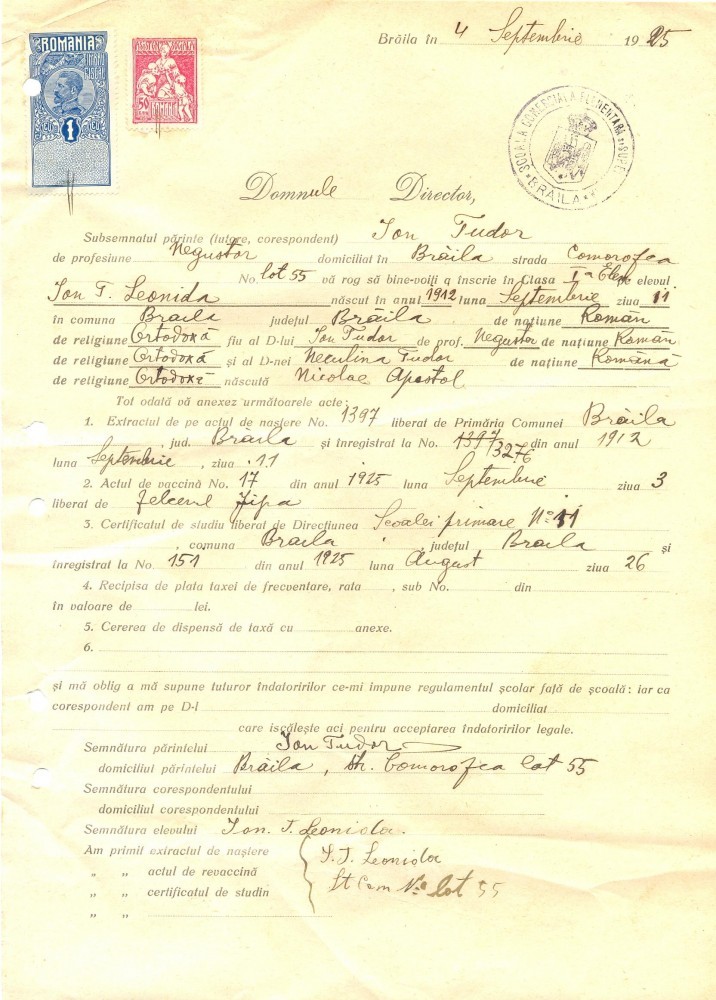 ROMANIA
TIMBRU FISCAL
1
50
ROMANIA
Brăila în 4 Septembrie 1925
ȘCOALA COMERCIALĂ ELEMENTARĂ ȘI SUPE.
BRĂILA
Domnule Director,
Subsemnatul părinte (tutore, corespondent) Ion Tudor
de profesiune Negustor domiciliat în Brăila strada Comorofca
No. lot 55 vă rog să bine-voiți a înscrie în Clasa I-a Elem elevul
Ion T. Leonida născut în anul 1912 luna Septembrie ziua 11
în comuna Braila județul Brăila de națiune Român
de religiune Ortodoxă fiu al D-lui Ion Tudor de prof. Negustor de națiune Român
de religiune Ortodoxă și al D-nei Neculina Tudor de națiune Română
de religiune Ortodoxă născută Nicolae Apostol
Tot odată vă anexez următoarele acte:
1. Extractul de pe actul de naștere No. 1397 liberat de Primăria Comunei Brăila
, jud. Braila și înregistrat la No. 1397/3276 din anul 1912
luna Septembrie, ziua 11
2. Actul de vaccină No. 17 din anul 1925 luna Septembrie ziua 3
liberat de
3. Certificatul de studiu liberat de Direcțiunea Școalei primare No 11
, comuna Braila, județul Braila și
înregistrat la No. 151 din anul 1925 luna August ziua 26
4. Recipisa de plata taxei de frecventare, rata , sub No. din
în valoare de lei.
5. Cererea de dispensă de taxă cu anexe.
6.
și mă oblig a mă supune tuturor îndatoririlor ce-mi impune regulamentul școlar față de școală: iar ca
corespondent am pe D-l domiciliat
care iscălește aci pentru acceptarea îndatoririlor legale.
Semnătura părintelui Ion Tudor
domiciliul părintelui Brăila, str. Comorofca lot 55
Semnătura corespondentului
domiciliul corespondentului
Semnătura elevului Ion. T. Leonida.
Am primit extractul de naștere I. T. Leonida
„ „ actul de revaccină St Com No lot 55
„ „ certificatul de studin
„ „